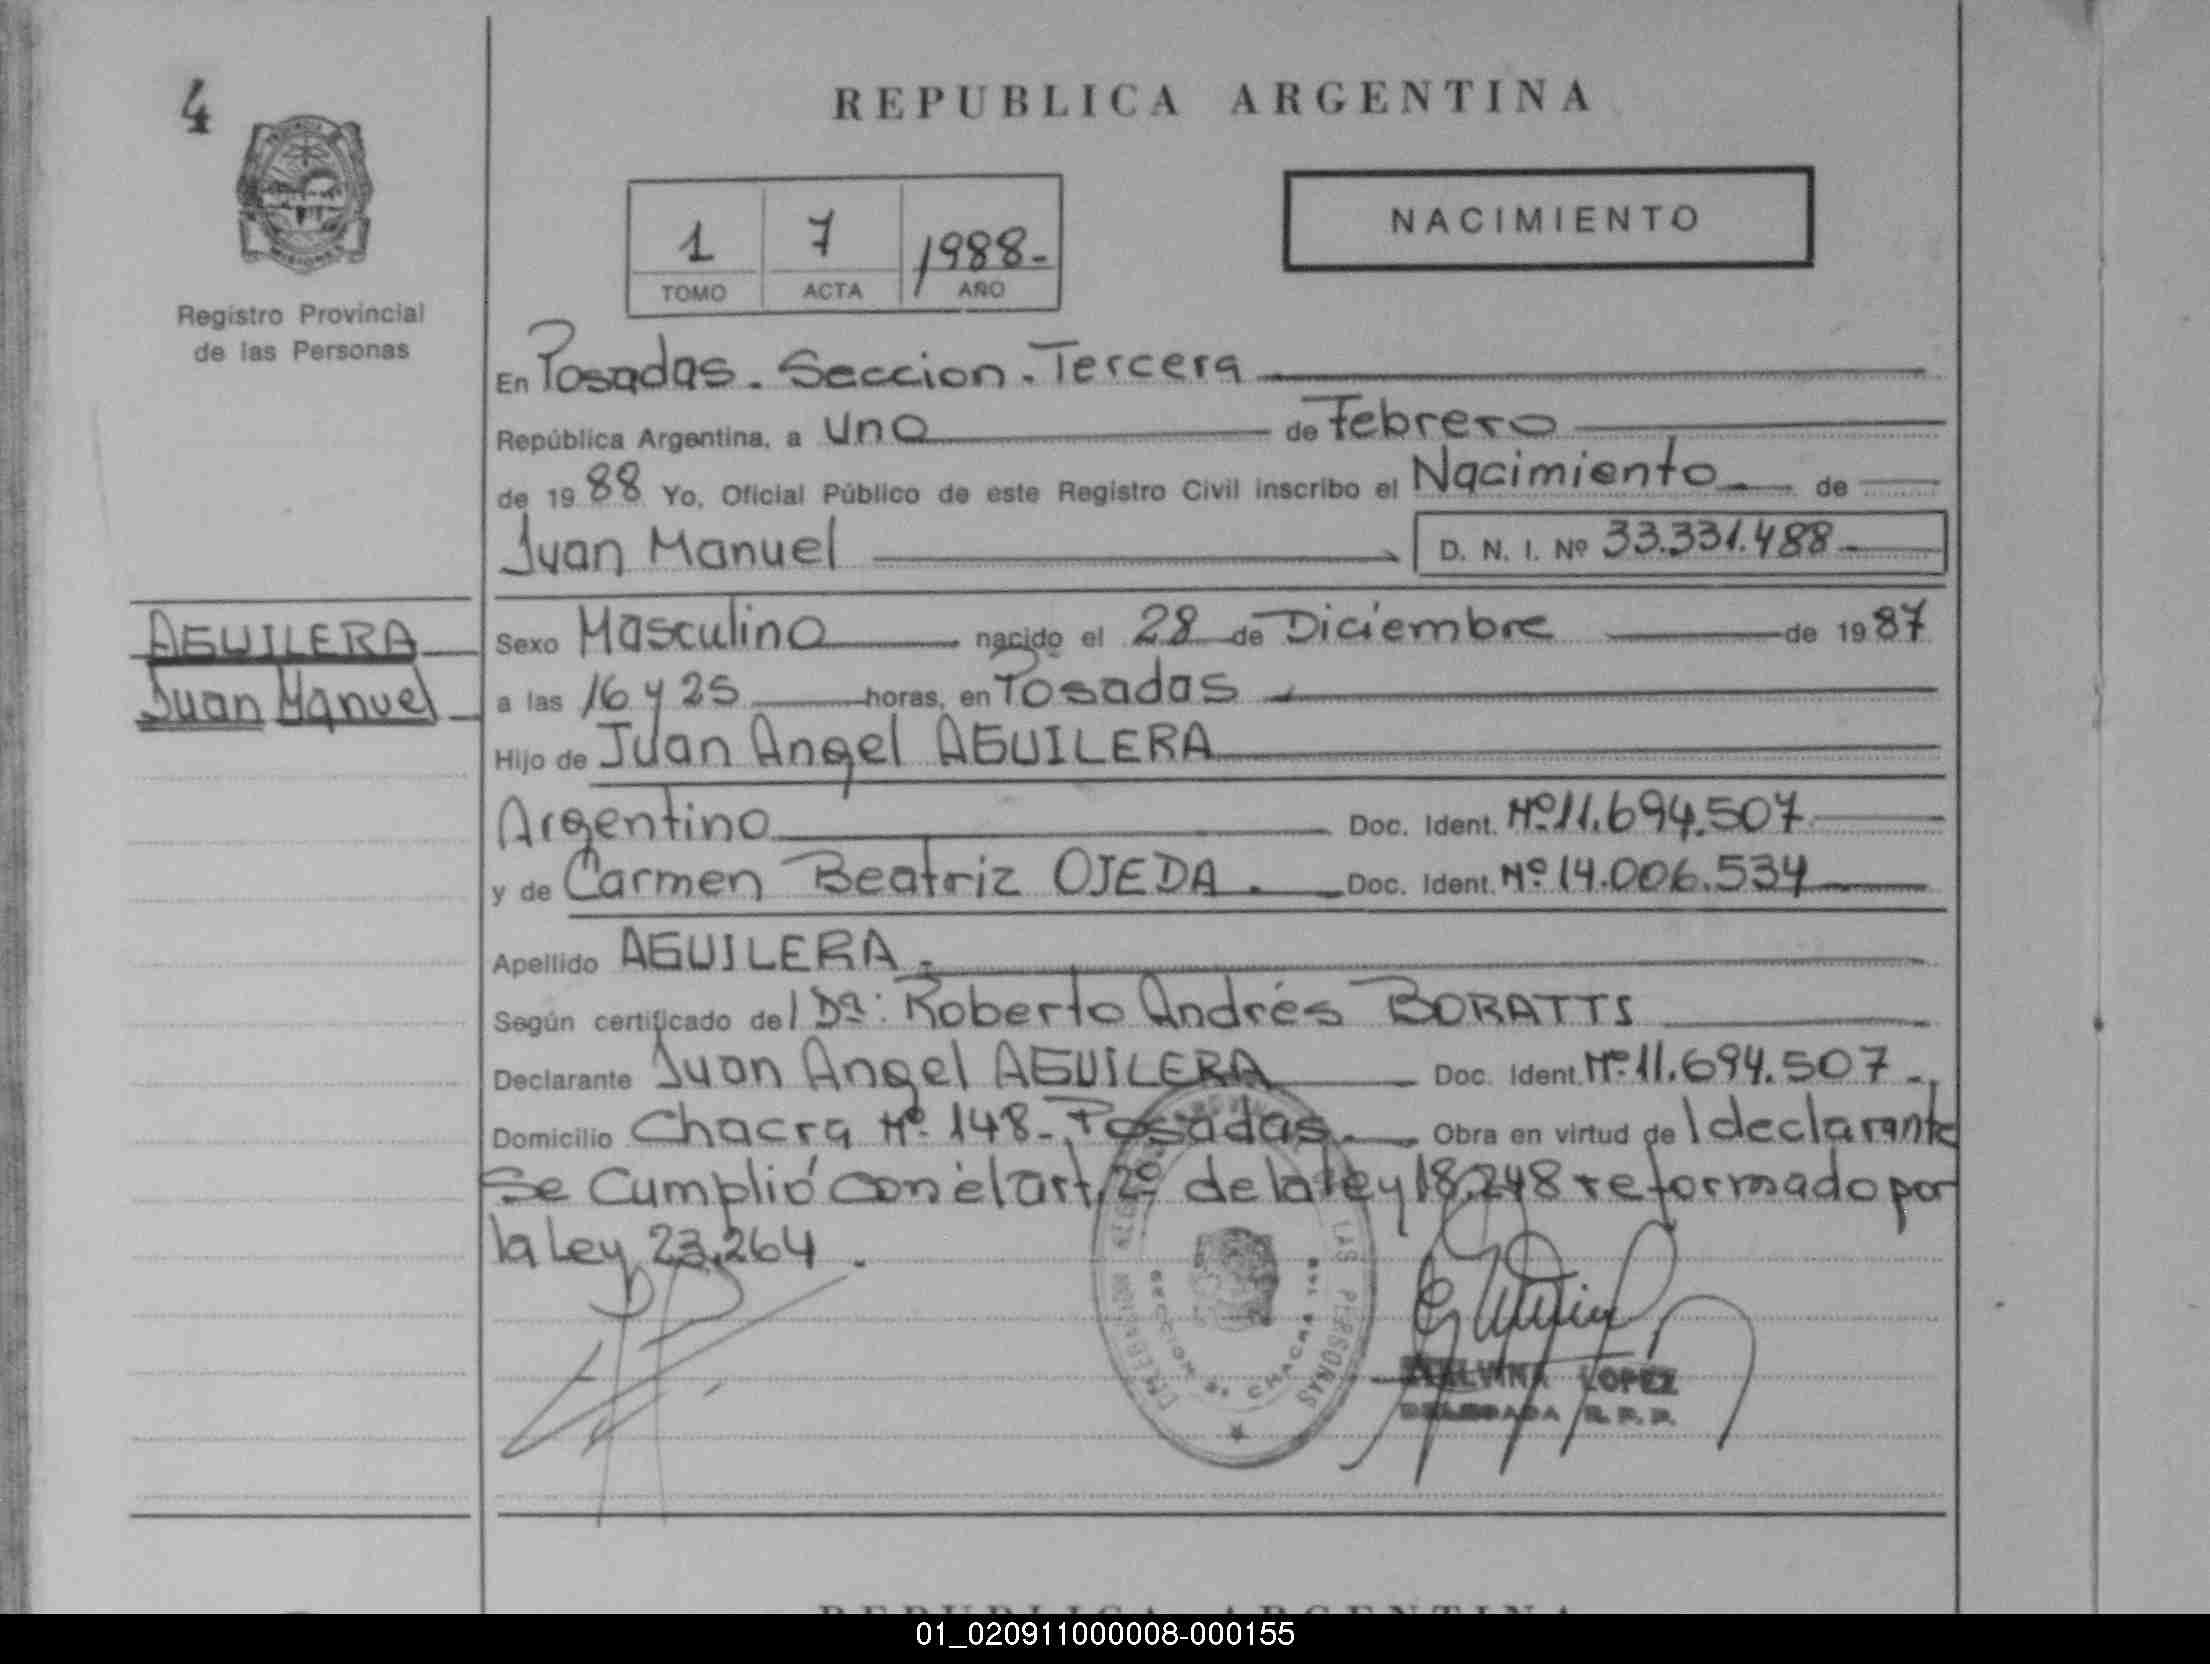 4
REPUBLICA ARGENTINA
NACIMIENTO
1 7 1988-
TOMO ACTA AÑO
Registro Provincial
de las Personas
En Posadas. Seccion. Tercera
República Argentina, a uno de Febrero
de 1988 Yo, Oficial Público de este Registro Civil inscribo el Nacimiento de
Juan Manuel D. N. I. Nº 33.331.488
AGUILERA
Juan Manuel
Sexo Masculino nacido el 28 de Diciembre de 1987
a las 16 y 25 horas, en Posadas
Hijo de Juan Angel AGUILERA
Argentino Doc. Ident. Nº 11.694.507
y de Carmen Beatriz OJEDA. Doc. Ident. Nº 14.006.534
Apellido AGUILERA.
Según certificado del Dr: Roberto Andrés BORATTS
Declarante Juan Angel AGUILERA Doc. Ident. Nº 11.694.507.
Domicilio Chacra Nº 148- Posadas. Obra en virtud del declarante
Se Cumplió con el art. 2º de la ley 18.248 reformado por
la Ley 23.264.
LAS PERSONAS
CHACRA 148
LOPEZ
DELEGADA R.P.P.
REPUBLICA ARGENTINA
01_020911000008-000155